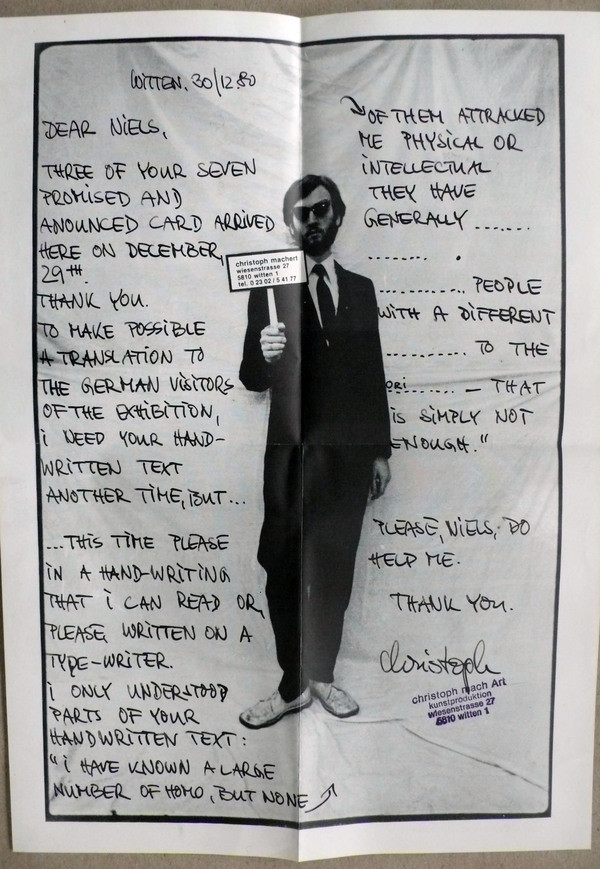 WITTEN, 30/12.80
DEAR NIELS,
THREE OF YOUR SEVEN
PROMISED AND
ANOUNCED CARD ARRIVED
HERE ON DECEMBER,
29TH.
THANK YOU.
TO MAKE POSSIBLE
A TRANSLATION TO
THE GERMAN VISITORS
OF THE EXHIBITION,
i NEED YOUR HAND-
WRITTEN TEXT
ANOTHER TIME, BUT...
...THIS TIME PLEASE
IN A HAND-WRITING
THAT i CAN READ OR,
PLEASE, WRITTEN ON A
TYPE-WRITER.
i ONLY UNDERSTOOD
PARTS OF YOUR
HANDWRITTEN TEXT:
"i HAVE KNOWN A LARGE
NUMBER OF HOMO, BUT NONE
OF THEM ATTRACKED
ME PHYSICAL OR
iNTELLECTUAL
THEY HAVE
GENERALLY .......
....... .
........... PEOPLE
WITH A DIFFERENT
........... TO THE
ORi........ – THAT
iS SiMPLY NOT
ENOUGH."
PLEASE, NIELS, DO
HELP ME.
THANK YOU.
christoph
christoph mach Art
kunstproduktion
wiesenstrasse 27
5810 witten 1
christoph macherl
wiesenstrasse 27
5810 witten 1
tel. 0 23 02 / 5 41 77